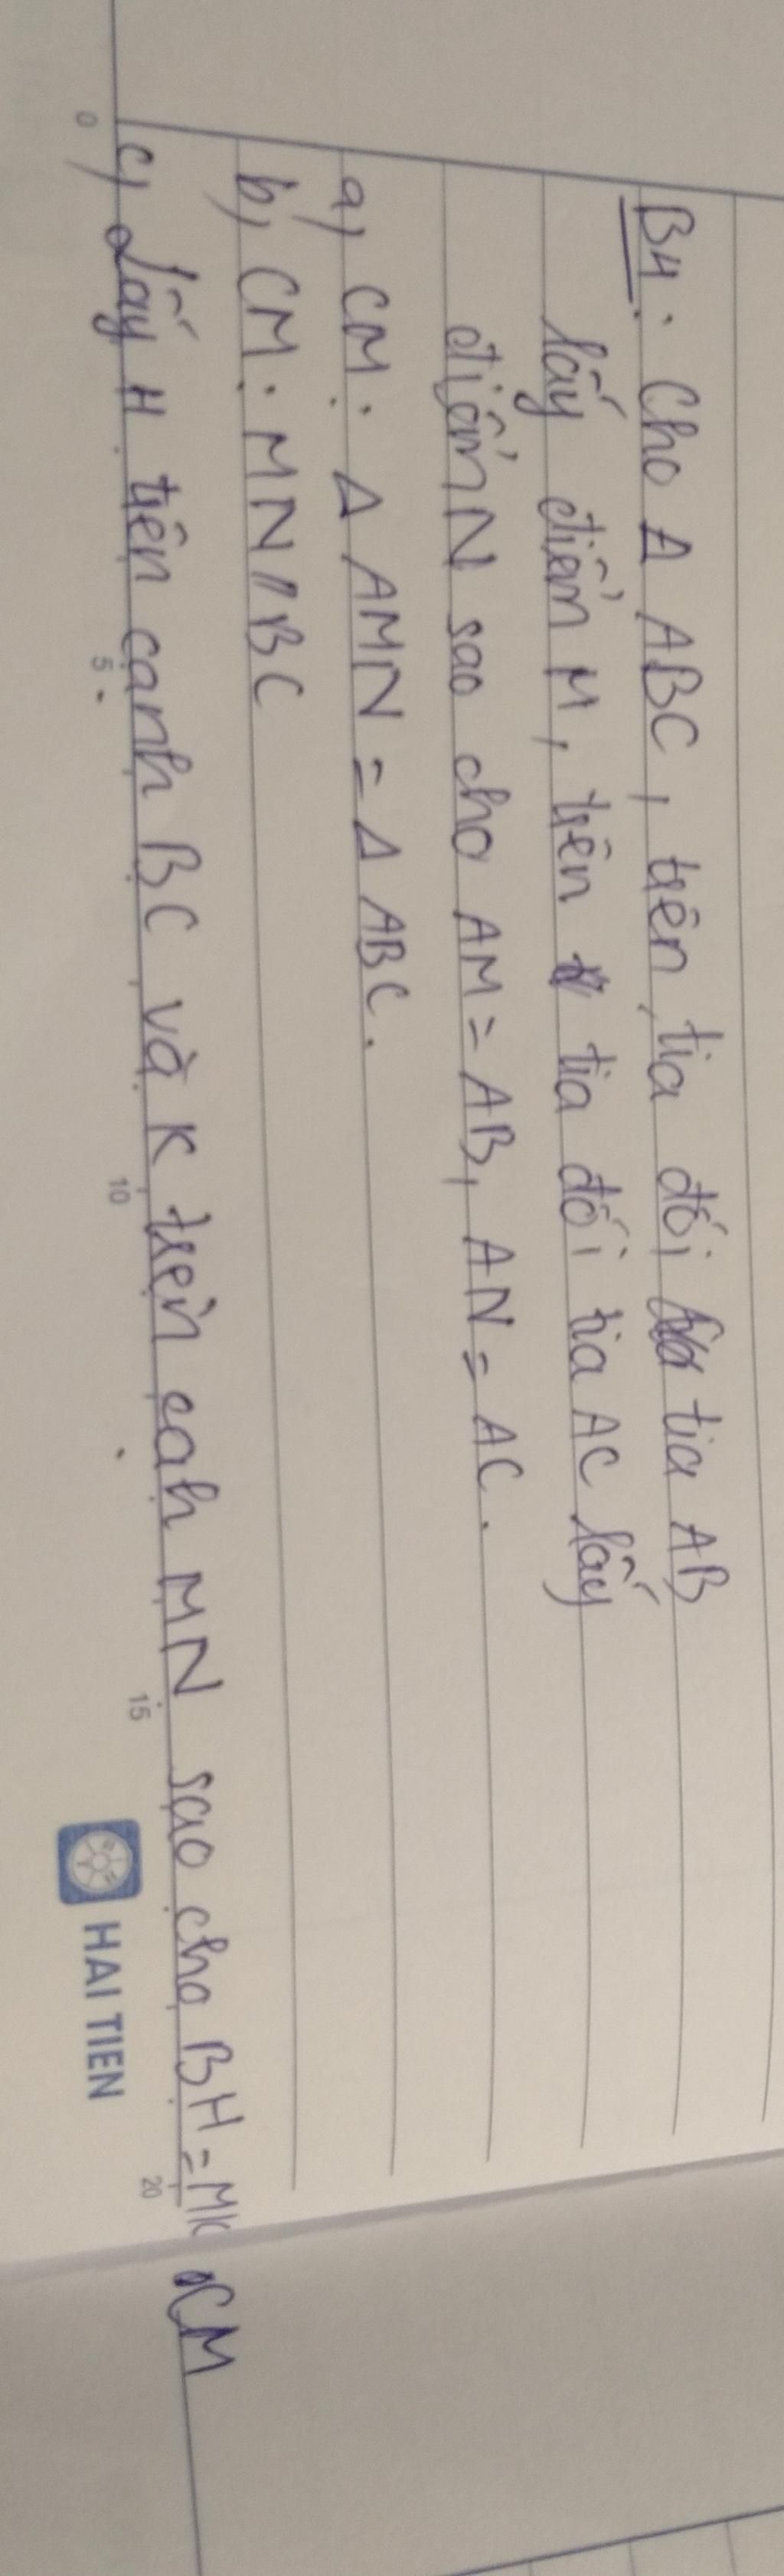 B4: Cho Δ ABC, trên tia đối tia AB
lấy điểm M, trên tia đối tia AC lấy
điểm N sao cho AM = AB, AN = AC.
a, CM: Δ AMN = Δ ABC.
b, CM: MN // BC
c, Lấy H trên cạnh BC và K trên cah MN sao cho BH = MK. CM
0 5 10 15 20
HAI TIEN